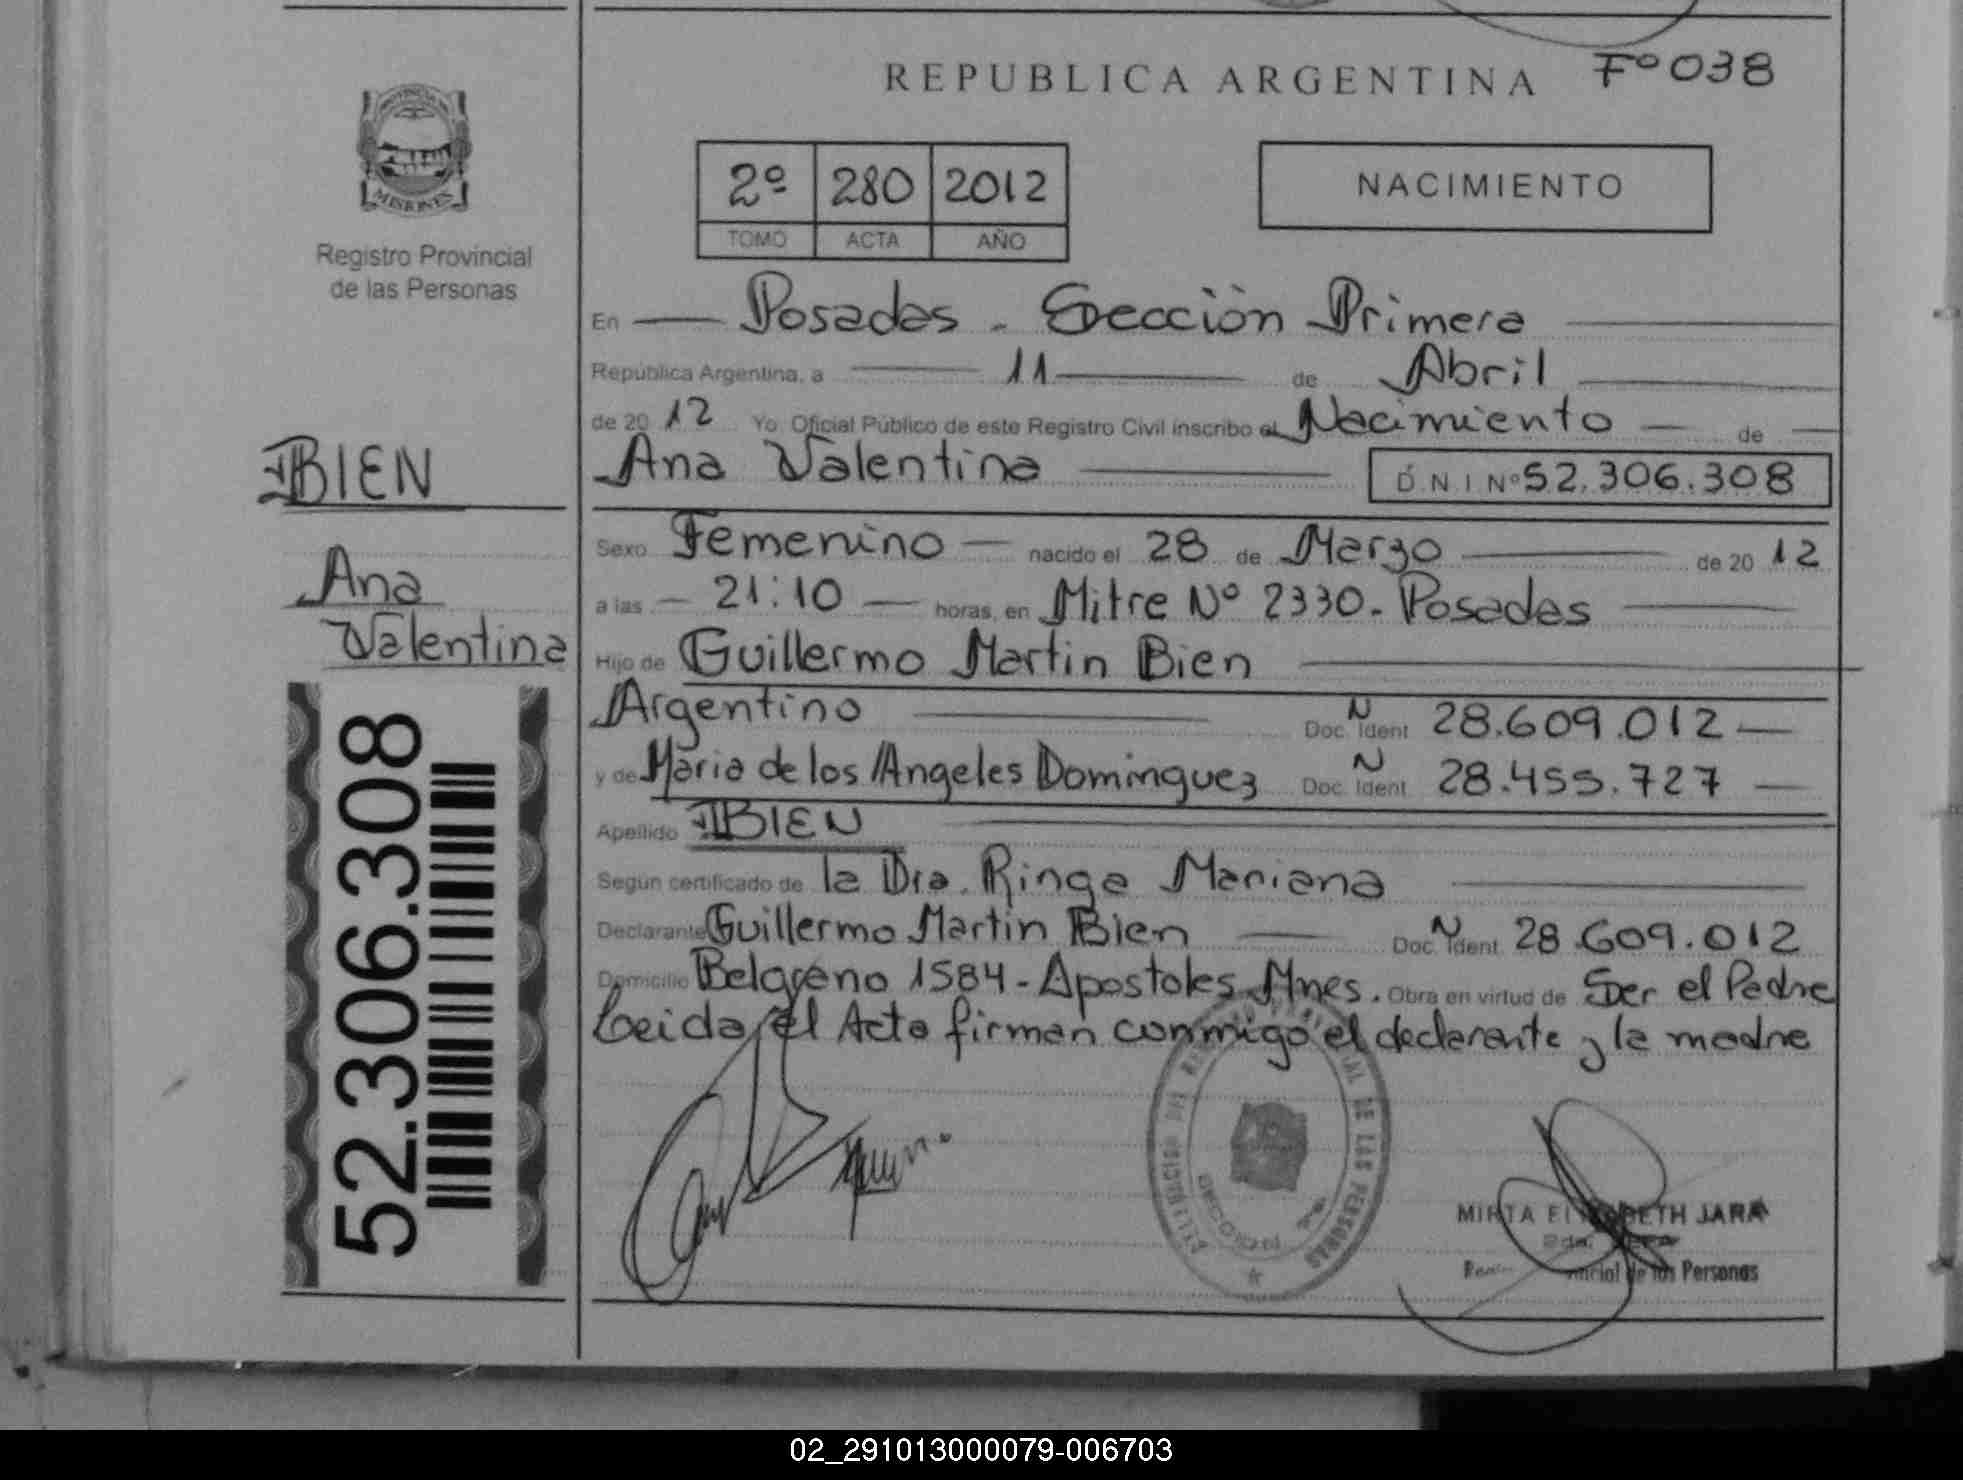 REPUBLICA ARGENTINA Fº 038
PROVINCIA DE
MISIONES
Registro Provincial
de las Personas
2º 280 2012
TOMO ACTA AÑO
NACIMIENTO
En Posadas - Sección Primera
República Argentina, a 11 de Abril
de 2012 Yo, Oficial Público de este Registro Civil inscribo el Nacimiento de
Ana Valentina D.N.I Nº 52.306.308
BIEN
Ana
Valentina
52.306.308
Sexo Femenino nacido el 28 de Marzo de 2012
a las 21:10 horas, en Mitre Nº 2330 - Posadas
Hijo de Guillermo Martin Bien
Argentino Doc. Ident N 28.609.012
y de Maria de los Angeles Dominguez Doc. Ident N 28.455.727
Apellido BIEN
Según certificado de la Dra. Ringa Mariana
Declarante Guillermo Martin Bien Doc. Ident. N 28.609.012
Domicilio Belgrano 1584 - Apostoles Mnes. Obra en virtud de Ser el Padre
Leida el Acta firman conmigo el declarante y la madre
DEL REGISTRO PROVINCIAL DE LAS PERSONAS
MIRTA ELIZABETH JARA
Provincial de las Personas
02_291013000079-006703